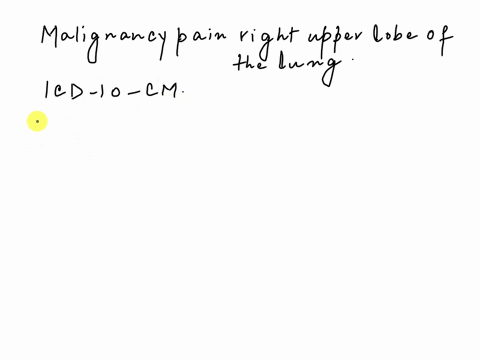 Malignancy pain right upper lobe of
the lung.
ICD-10-CM.